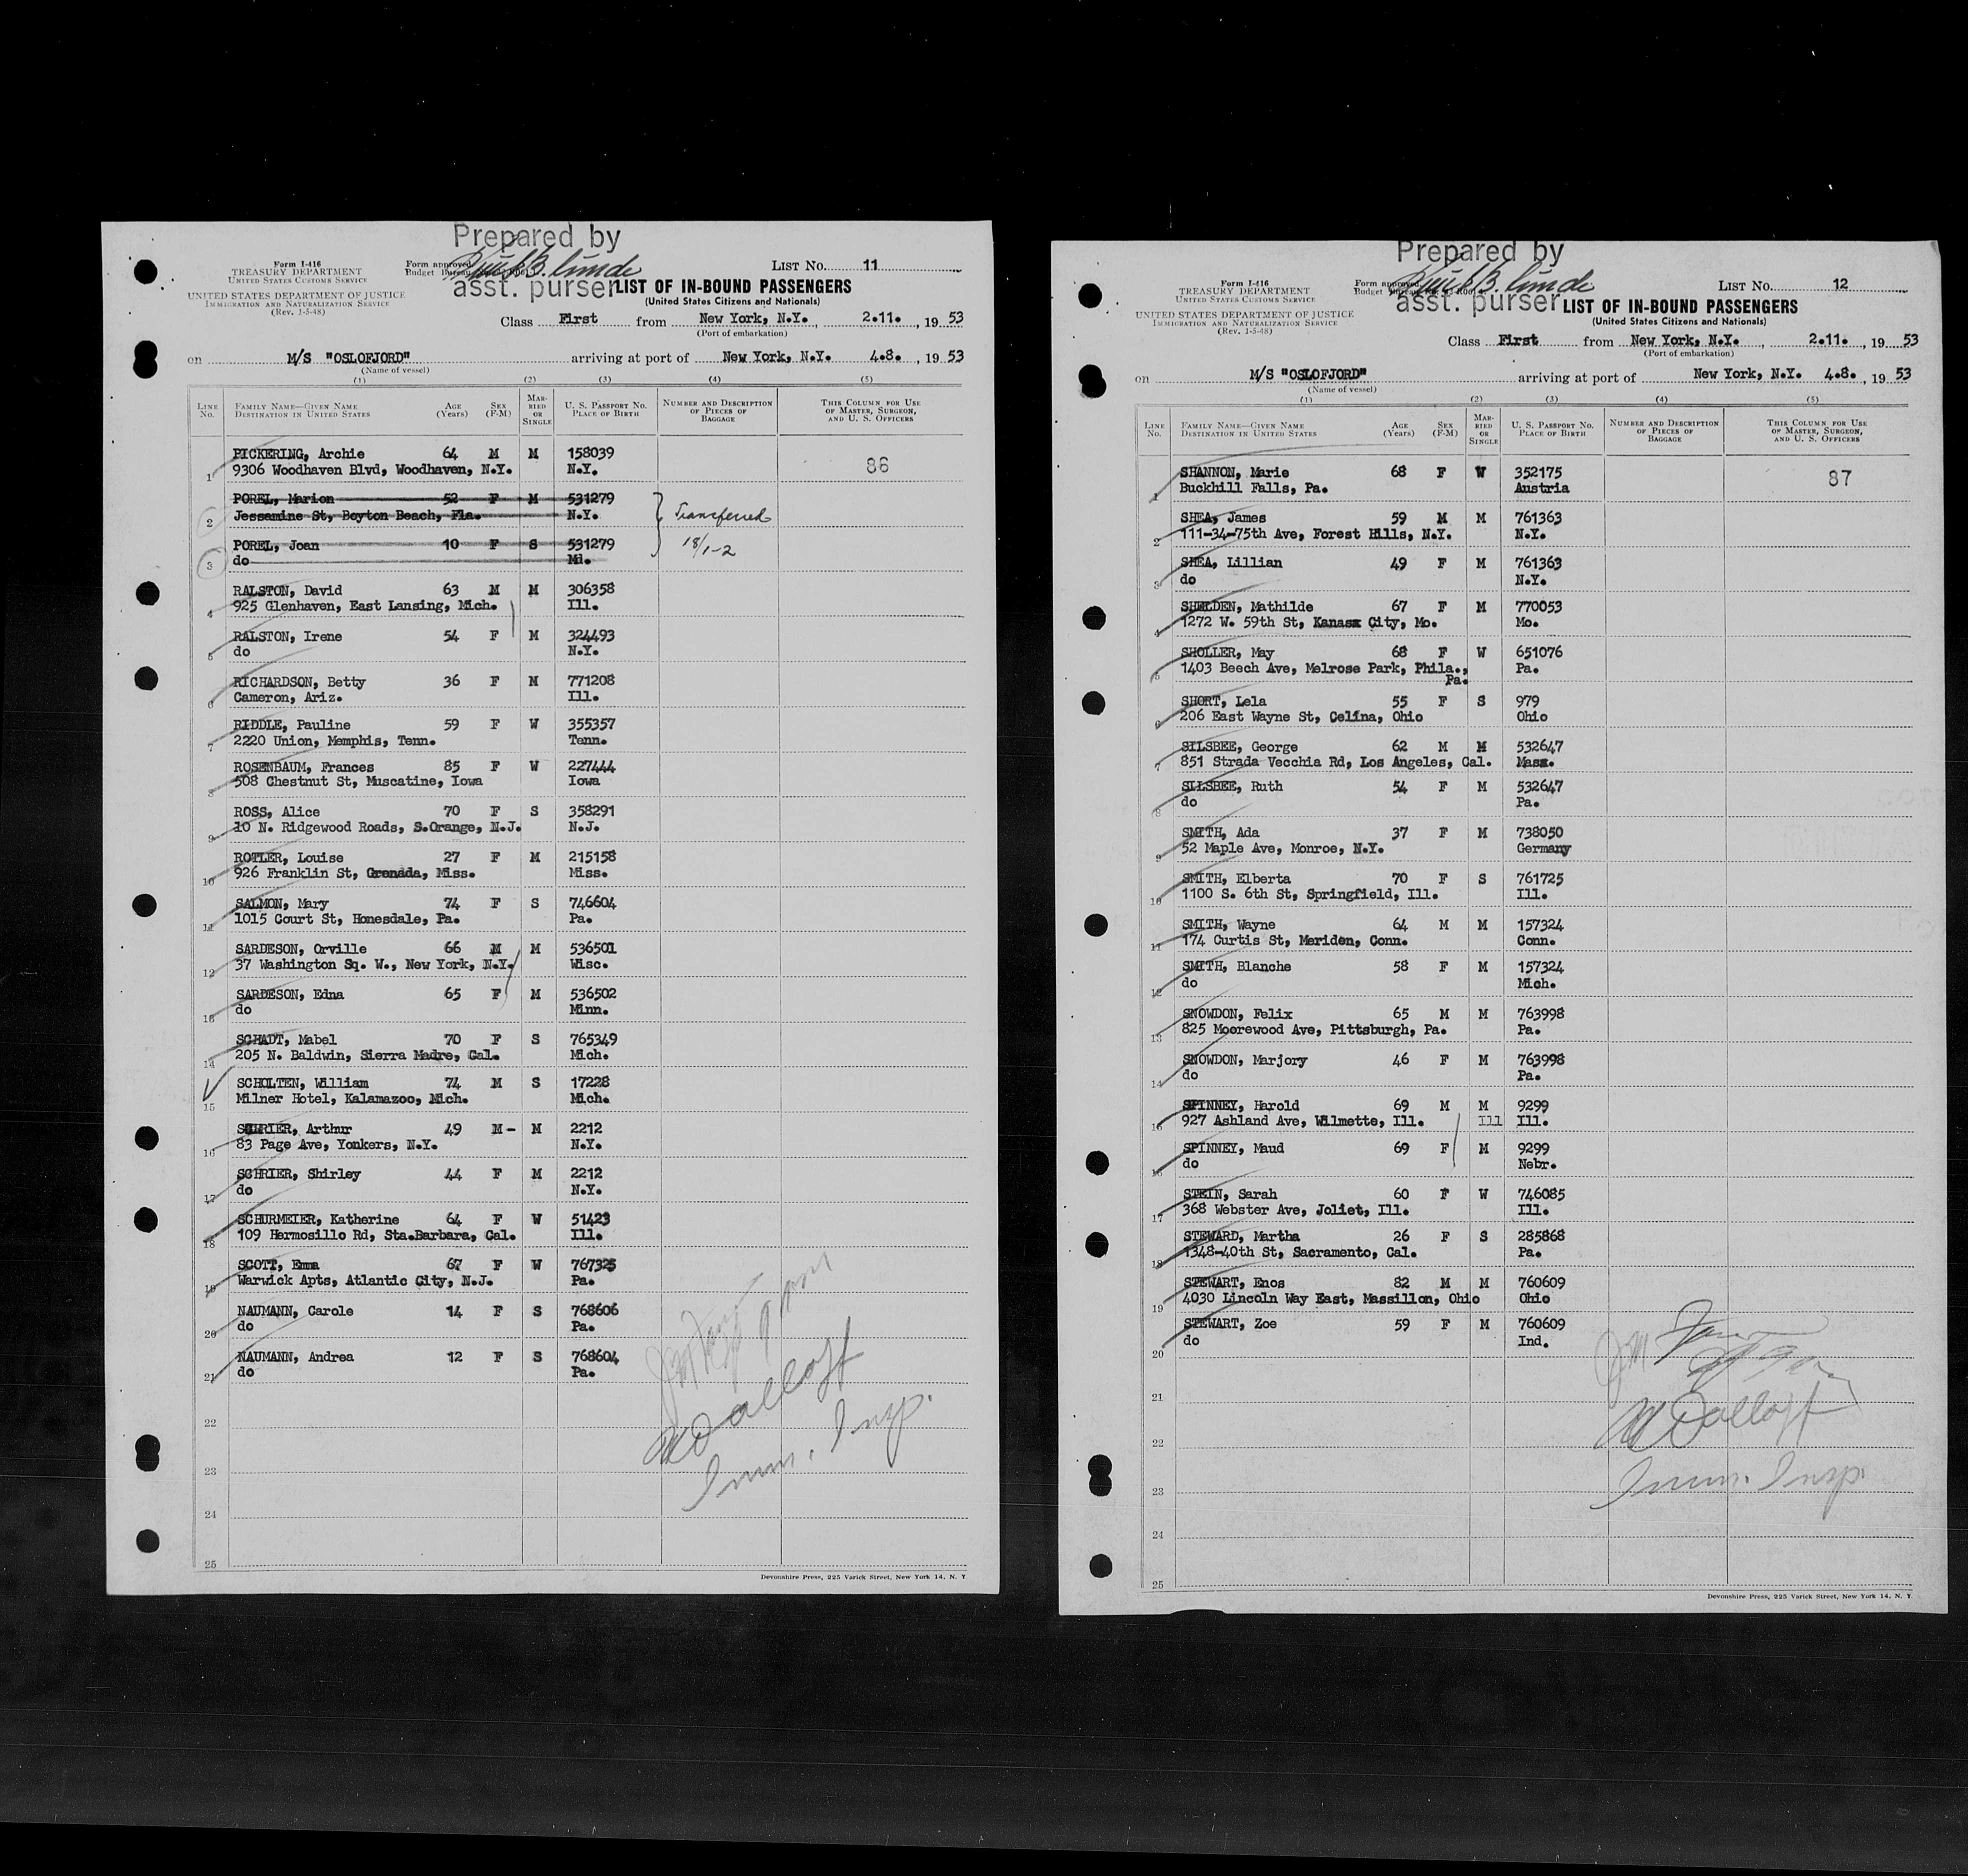 Prepared by
Form I-416
TREASURY DEPARTMENT
UNITED STATES CUSTOMS SERVICE
Form approved
Budget Bureau
LIST NO. 11
asst. purser
LIST OF IN-BOUND PASSENGERS
UNITED STATES DEPARTMENT OF JUSTICE
IMMIGRATION AND NATURALIZATION SERVICE
(Rev. 1-5-48)
(United States Citizens and Nationals)
Class First from New York, N.Y. , 2.11. , 19 53
(Port of embarkation)
on M/S "OSLOFJORD" arriving at port of New York, N.Y. 4.8. , 19 53
(Name of vessel)
(1) (2) (3) (4) (5)
LINE No. FAMILY NAME—GIVEN NAME DESTINATION IN UNITED STATES AGE (Years) SEX (F-M) MARRIED OR SINGLE U. S. PASSPORT NO. PLACE OF BIRTH NUMBER AND DESCRIPTION OF PIECES OF BAGGAGE THIS COLUMN FOR USE OF MASTER, SURGEON, AND U. S. OFFICERS
PICKERING, Archie 64 M M 158039 86
1 9306 Woodhaven Blvd, Woodhaven, N.Y. N.Y.
POREL, Marion 52 F M 531279
2 Jessamine St, Boyton Beach, Fla. N.Y. Transferred
POREL, Joan 10 F S 531279 18/1-2
3 do Md.
RALSTON, David 63 M M 306358
4 925 Glenhaven, East Lansing, Mich. Ill.
RALSTON, Irene 54 F M 324493
5 do N.Y.
RICHARDSON, Betty 36 F M 771208
6 Cameron, Ariz. Ill.
RIDDLE, Pauline 59 F W 355357
7 2220 Union, Memphis, Tenn. Tenn.
ROSENBAUM, Frances 85 F W 227444
8 508 Chestnut St, Muscatine, Iowa Iowa
ROSS, Alice 70 F S 358291
9 10 N. Ridgewood Roads, S.Orange, N.J. N.J.
ROTLER, Louise 27 F M 215158
10 926 Franklin St, Grenada, Miss. Miss.
SALMON, Mary 74 F S 746604
11 1015 Court St, Honesdale, Pa. Pa.
SARDESON, Orville 66 M M 536501
12 37 Washington Sq. W., New York, N.Y. Wisc.
SARDESON, Edna 65 F M 536502
13 do Minn.
SCHADT, Mabel 70 F S 765349
14 205 N. Baldwin, Sierra Madre, Cal. Mich.
SCHOLTEN, William 74 M S 17228
15 Milner Hotel, Kalamazoo, Mich. Mich.
SCHRIER, Arthur 49 M - M 2212
16 83 Page Ave, Yonkers, N.Y. N.Y.
SCHRIER, Shirley 44 F M 2212
17 do N.Y.
SCHURMEIER, Katherine 64 F W 51423
18 109 Hermosillo Rd, Sta.Barbara, Cal. Ill.
SCOTT, Emma 67 F W 767325
19 Warwick Apts, Atlantic City, N.J. Pa.
NAUMANN, Carole 14 F S 768606
20 do Pa.
NAUMANN, Andrea 12 F S 768604
21 do Pa.
22
23
Imm. Insp.
24
25
Devonshire Press, 225 Varick Street, New York 14, N. Y
Prepared by
Form I-416
TREASURY DEPARTMENT
UNITED STATES CUSTOMS SERVICE
Form approved
Budget
LIST NO. 12
asst. purser
LIST OF IN-BOUND PASSENGERS
UNITED STATES DEPARTMENT OF JUSTICE
IMMIGRATION AND NATURALIZATION SERVICE
(Rev. 1-5-48)
(United States Citizens and Nationals)
Class First from New York, N.Y. , 2.11. , 19 53
(Port of embarkation)
on M/S "OSLOFJORD" arriving at port of New York, N.Y. 4.8. , 19 53
(Name of vessel)
(1) (2) (3) (4) (5)
LINE No. FAMILY NAME—GIVEN NAME DESTINATION IN UNITED STATES AGE (Years) SEX (F-M) MARRIED OR SINGLE U. S. PASSPORT NO. PLACE OF BIRTH NUMBER AND DESCRIPTION OF PIECES OF BAGGAGE THIS COLUMN FOR USE OF MASTER, SURGEON, AND U. S. OFFICERS
SHANNON, Marie 68 F W 352175 87
1 Buckhill Falls, Pa. Austria
SHEA, James 59 M M 761363
2 111-34-75th Ave, Forest Hills, N.Y. N.Y.
SHEA, Lillian 49 F M 761363
3 do N.Y.
SHELDEN, Mathilde 67 F M 770053
4 1272 W. 59th St, Kanasx City, Mo. Mo.
SHOLLER, May 68 F W 651076
5 1403 Beech Ave, Melrose Park, Phila., Pa. Pa.
SHORT, Lela 55 F S 979
6 206 East Wayne St, Celina, Ohio Ohio
SILSBEE, George 62 M M 532647
7 851 Strada Vecchia Rd, Los Angeles, Cal. Mass.
SILSBEE, Ruth 54 F M 532647
8 do Pa.
SMITH, Ada 37 F M 738050
9 52 Maple Ave, Monroe, N.Y. Germany
SMITH, Elberta 70 F S 761725
10 1100 S. 6th St, Springfield, Ill. Ill.
SMITH, Wayne 64 M M 157324
11 174 Curtis St, Meriden, Conn. Conn.
SMITH, Blanche 58 F M 157324
12 do Mich.
SNOWDON, Felix 65 M M 763998
13 825 Moorewood Ave, Pittsburgh, Pa. Pa.
SNOWDON, Marjory 46 F M 763998
14 do Pa.
SPINNEY, Harold 69 M M 9299
15 927 Ashland Ave, Wilmette, Ill. Ill Ill.
SPINNEY, Maud 69 F M 9299
16 do Nebr.
STEIN, Sarah 60 F W 746085
17 368 Webster Ave, Joliet, Ill. Ill.
STEWARD, Martha 26 F S 285868
18 1348-40th St, Sacramento, Cal. Pa.
STEWART, Enos 82 M M 760609
19 4030 Lincoln Way East, Massillon, Ohio Ohio
STEWART, Zoe 59 F M 760609
20 do Ind.
21
22
23 Imm. Insp.
24
25
Devonshire Press, 225 Varick Street, New York 14, N. Y.